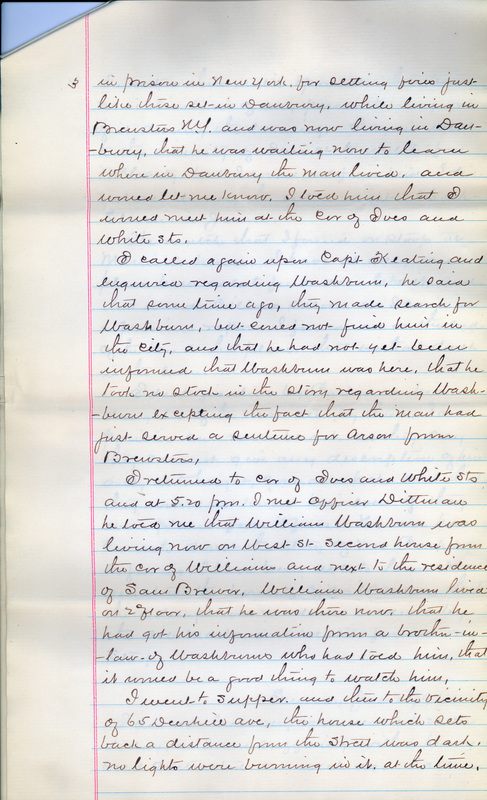 3
in prison in New York. for setting fires just
like those set in Danbury. while living in
Brewsters N.Y. and was now living in Dan-
-bury, that he was waiting now to learn
where in Danbury the man lived. and
would let me know. I told him that I
would meet him at the Cor of Ives and
White Sts.
I called again upon Capt Keating and
enquired regarding Washburn, he said
that some time ago, they made search for
Washburn, but could not find him in
the City, and that he had not yet been
informed that Washburn was here, that he
took no stock in the story regarding Wash-
-burn excepting the fact that the man had
just served a sentence for Arson from
Brewsters,
I returned to Cor of Ives and White Sts
and at 5.20 pm. I met Officer Dittman
he told me that William Washburn was
living now on West St- second house from
the Cor of William and next to the residence
of Sam Brewer. William Washburn lived
on 2d floor, that he was there now. that he
had got his information from a brother-in-
-law-of Washburns who had told him, that
it would be a good thing to watch him,
I went to Supper. and then to the vicinity
of 65 Deerhill ave, the house which sets
back a distance from the Street was dark.
no lights were burning in it. at the time.